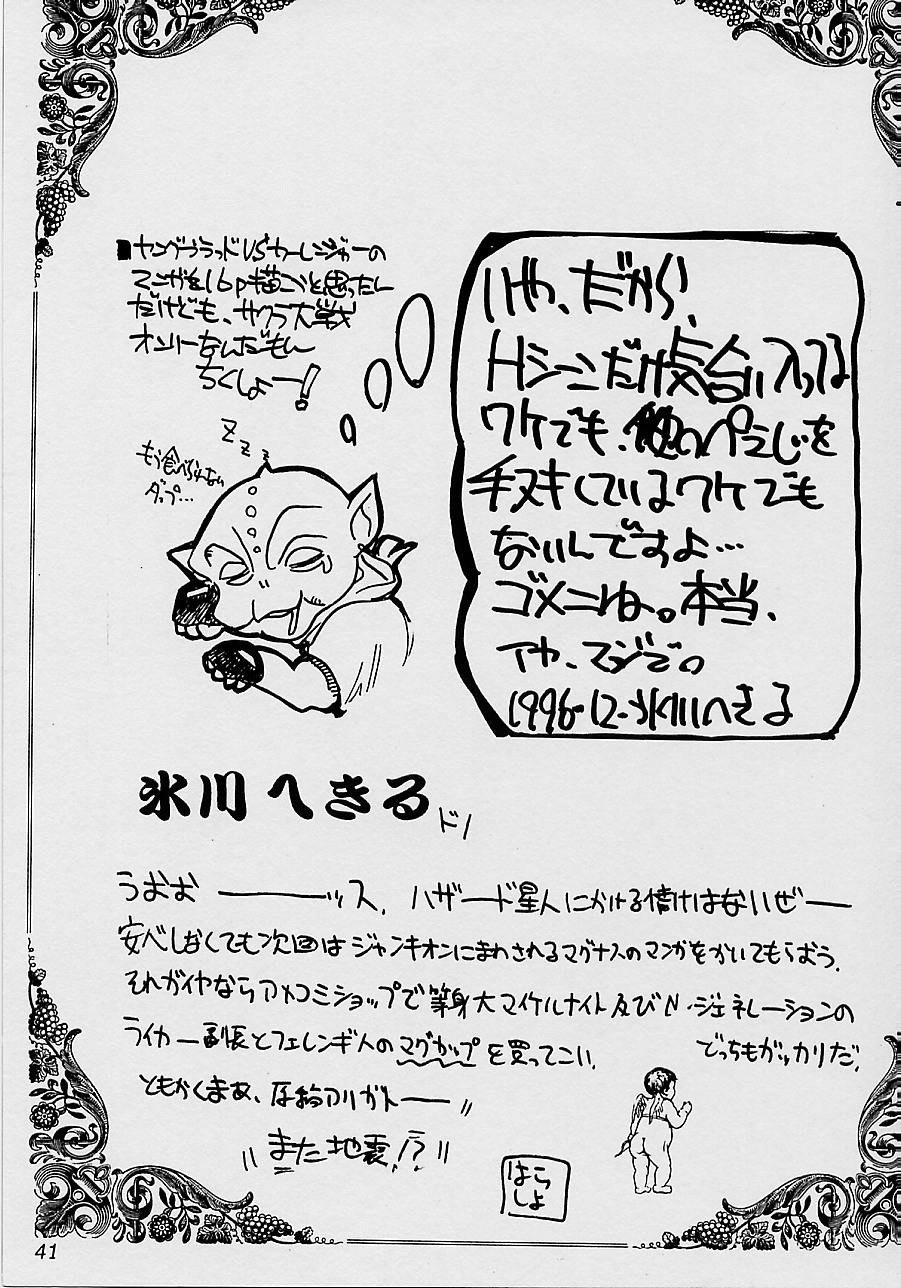 ■ヤングブラッドVSカーレンジャーの
マンガを16p描こうと思ったん
だけども、サクラ大戦
オンリーなんだもん
ちくしょー!
zzz
もう食べられない
ダップ…
いや、だから、
Hシーンだけ気合い入ってる
ワケでも、他のぺえじを
手ヌキしているワケでも
ないんですよ…
ゴメンね。本当、
イヤ、マジで。
1996-12-氷川へきる
氷川へきる
ドノ
うおお――――ッス、ハザード星人にかける情けはないぜ―
安心しなくても次回はジャンキオンにまわされるマグナスのマンガをかいてもらおう.
それがイヤならアメコミショップで等身大マイケルナイト及びN・ジェネレーションの
ライカー副長とフェレンギ人のマグカップを買ってこい.
でっちもガッカリだ.
ともかくまあ、原稿アリガトー――〃
〃また地震!?〃
はら
しょ
41